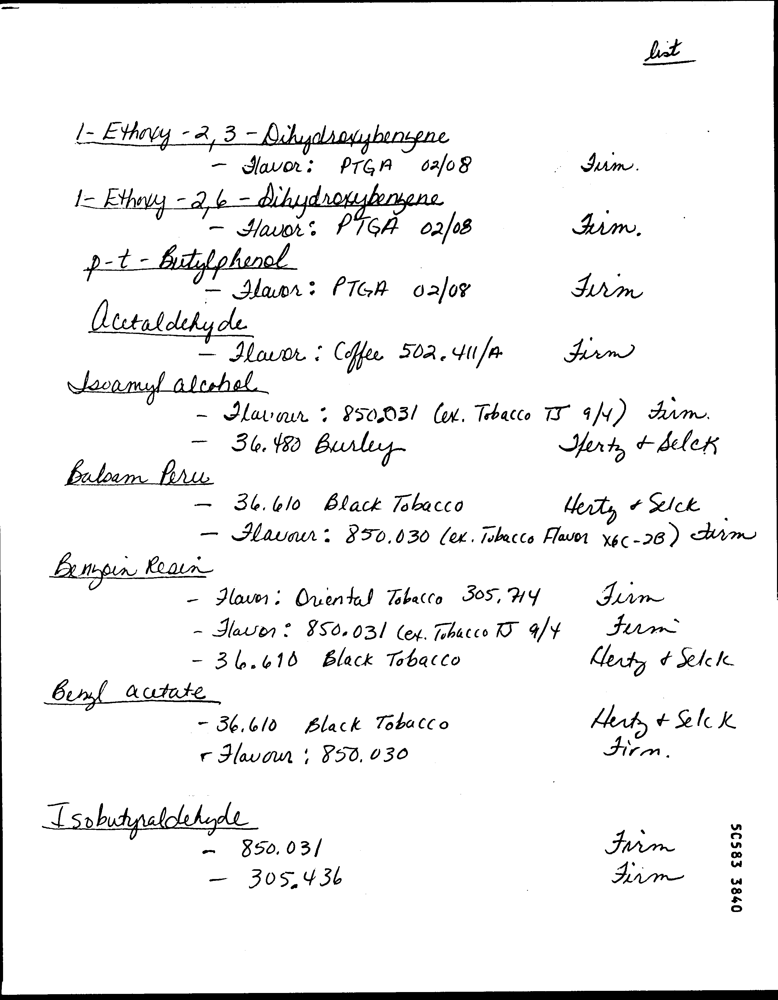 list
1- Ethoxy - 2, 3 - Dihydroxybenzene
- Flavor: PTGA 02/08 Firm.
1- Ethoxy - 2,6 - Dihydroxybenzene
- Flavor: PTGA 02/08 Firm.
p-t - Butylphenol
- Flavor: PTGA 02/08 Firm
Acetaldehyde
- Flavor: Coffee 502.411/A Firm
Isoamyl alcohol
- Flavour: 850.031 (ex. Tobacco TJ 9/4) Firm.
- 36.480 Burley Hertz & Selck
Balsam Peru
- 36.610 Black Tobacco Hertz & Selck
- Flavour: 850.030 (ex. Tobacco Flavor X6C-2B) Firm
Benzoin Resin
- Flavor: Oriental Tobacco 305.714 Firm
- Flavor: 850.031 (ex. Tobacco TJ 9/4 Firm
- 36.610 Black Tobacco Hertz & Selck
Benzyl acetate
- 36.610 Black Tobacco Hertz & Selck
- Flavour: 850.030 Firm.
Isobutyraldehyde
- 850.031 Firm
- 305.436 Firm
50583 3840